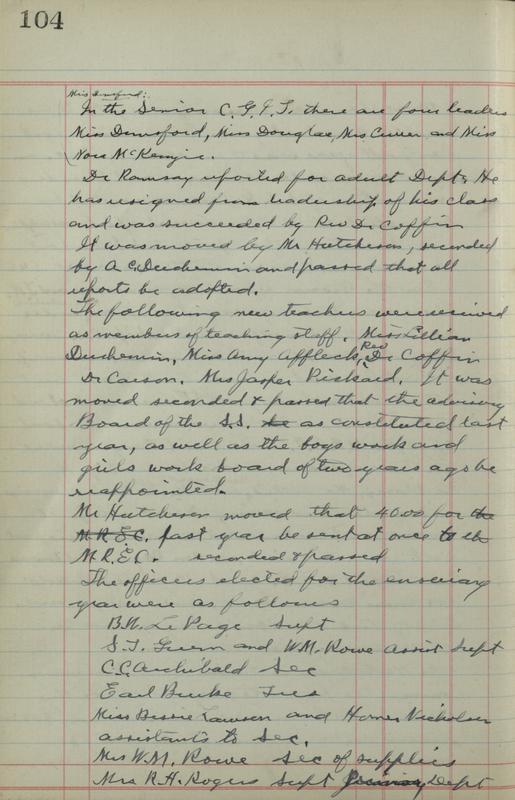 104
Miss Dunsford:
In the Senior C. G. I. T. there are four leaders
Miss Dunsford, Miss Douglas, Mrs. and Miss
Nora McKenzie.
Dr Ramsay reported for adult Dept. He
has resigned from leadership of his class
and was succeeded by Rev Dr Coffin
It was moved by Mr Hutcheson, seconded
by A C. Duchemin and passed that all
reports be adopted.
The following new teachers were received
as members of teaching staff. Miss Lillian
Duchemin, Miss Amy Affleck, Rev Dr Coffin
Dr Carson. Mrs Jasper Pickard. It was
moved seconded & passed that the advisory
Board of the S.S. be as constituted last
year, as well as the boys work and
girls work board of two years ago be
reappointed.
Mr Hutcheson moved that 40.00 for the
M.R.E.C. past year be sent at once to the
M.R.E.C. seconded & passed
The officers elected for the ensuing
year were as follows
B.N. Le Page Supt
S.T. Green and W.M. Rowe assist Supt
C.C. Archibald Sec
Earl Burke Tres
Miss Bessie Lawson and Homer Nicholson
assistants to Sec.
Mrs W.M. Rowe Sec of supplies
Mrs R.H. Rogers Supt Primary Dept